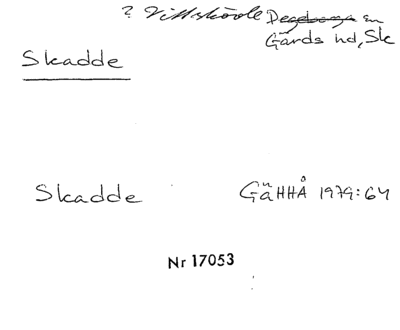 ? Vittskövle Degeberga sn
Gärds hd, Sk
Skadde
Skadde GäHHÅ 1979:64
Nr 17053